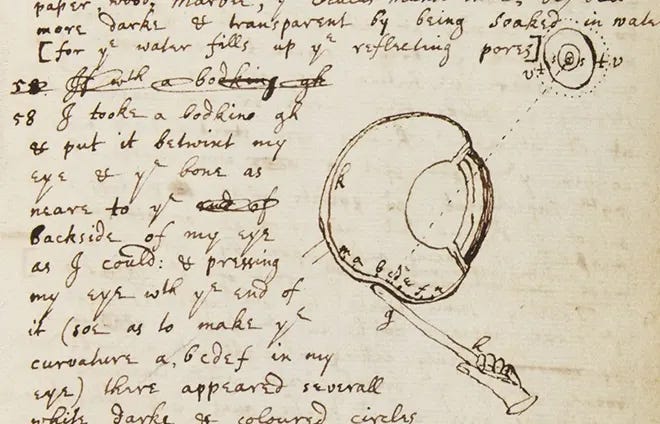 paper, wood, marble, y
more darke & transparent by being soaked in wate
[for yᵉ water fills up yᵉ reflecting pores]
58 If wth a bodking gh
58 I tooke a bodkine gh
& put it betwixt my
eye & yᵉ bone as
neare to yᵉ end of
backside of my eye
as I could: & pressing
my eye wth yᵉ end of
it (soe as to make yᵉ
curvature a, bcdef in my
eye) there appeared severall
white darke & coloured circles
v t s r s t v
k
m a b c d e f n
g
h